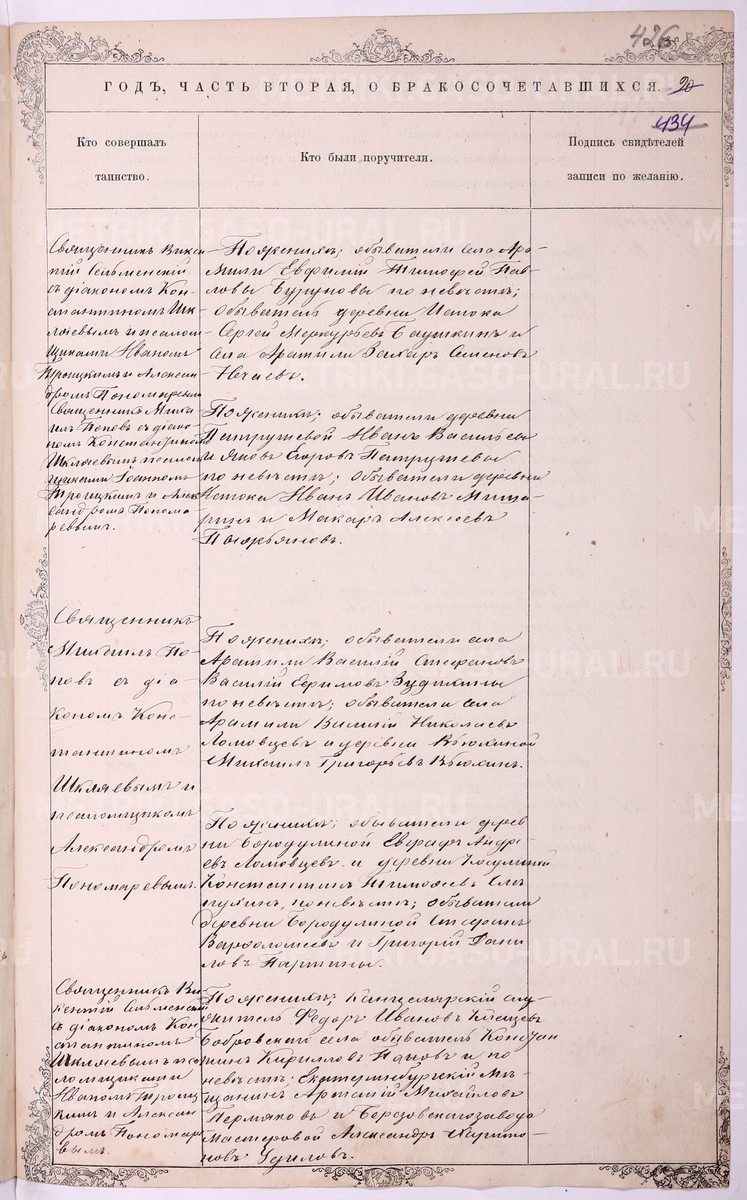 426
ГОДЪ, ЧАСТЬ ВТОРАЯ, О БРАКОСОЧЕТАВШИХСЯ. 20
434
Кто совершалъ
таинство.
Кто были поручители.
Подпись свидѣтелей
записи по желанію.
Священникъ Викен
тій Сельменскій
съ діакономъ Кон
стантиномъ Шк
ляевымъ и псалом
щиками Иваномъ
Троицкимъ и Алексан
дромъ Пономаревым
По женихѣ; обыватели села Ара-
мили Евфимій Тимофей Пав-
ловы по невѣстѣ;
обыватель деревни Истока
Сергей Меркурьевъ и
села Арамили Захаръ Семеновъ
Нечаевъ.
Священникъ Миха
илъ Поповъ съ діако
номъ Константиномъ
Шкляевымъ и псалом
щиками Іоанномъ
Троицкимъ и Алек
сандромъ Понома
ревымъ.
По женихѣ; обыватели деревни
Патрушевой Иванъ Васильевъ
и Яковъ Егоровъ Патрушевы
по невѣстѣ; обыватели деревни
Истока Иванъ Ивановъ
и Макаръ Алексѣевъ
Священникъ
Михаилъ По-
повъ съ діа-
кономъ Конс-
тантиномъ
Шкляевымъ и
псаломщикомъ
Александромъ
Пономаревымъ.
По женихѣ; обыватели села
Арамили Василій Стефановъ
Василій Ефимовъ
по невѣстѣ; обыватели села
Арамили Василій Николаевъ
Ломовцевъ и деревни Вьюхиной
Михаилъ Григорьевъ Вьюхинъ.
По женихѣ; обыватели дерев
ни Бородулиной Евграфъ Андре
евъ Ломовцевъ и деревни
Константинъ Тимофеевъ
по невѣстѣ; обыватели
деревни Бородулиной Стефанъ
Варфоломеевъ и Григорій Дани
ловъ Паргины.
Священникъ Ви
кентій Сельменскій
съ діакономъ Кон
стантиномъ
Шкляевымъ и пса
ломщиками
Иваномъ Троиц
кимъ и Алексан
дромъ Пономаре
вымъ.
По женихѣ; Канцелярскій слу-
житель Федоръ Ивановъ
Бобровскаго села обыватель Констан
тинъ Кирилловъ Поповъ и по
невѣстѣ: Екатеринбургскій мѣ-
щанинъ Артемій Михайловъ
Пермяковъ и Березовскаго завода
мастеровой Александръ Харито-
новъ Удиловъ.